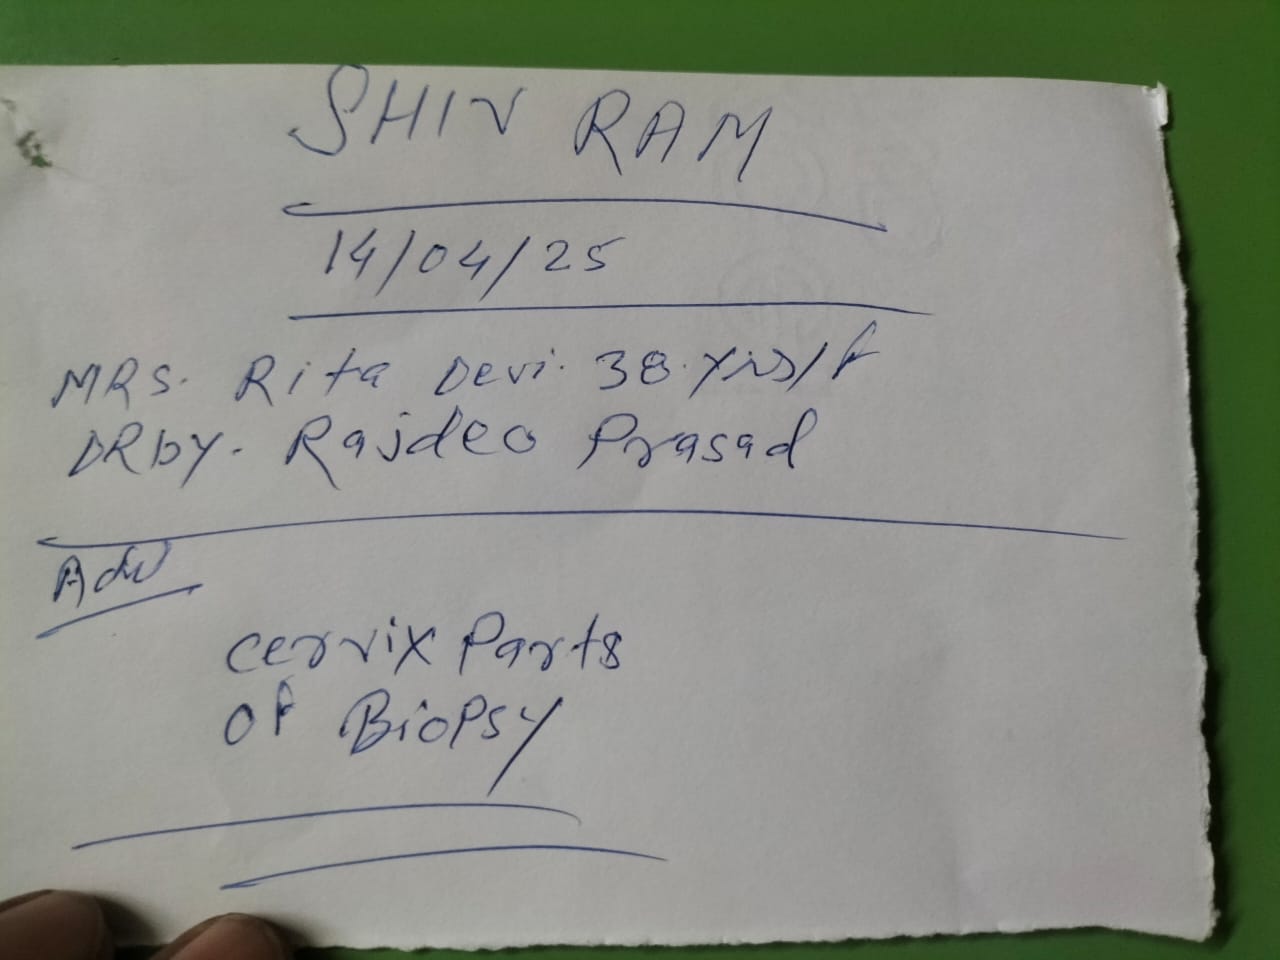 SHIV RAM
14/04/25
MRS. Rita Devi. 38 Yrs/F
DRby. Rajdeo Prasad
Adv
cervix Parts
of Biopsy